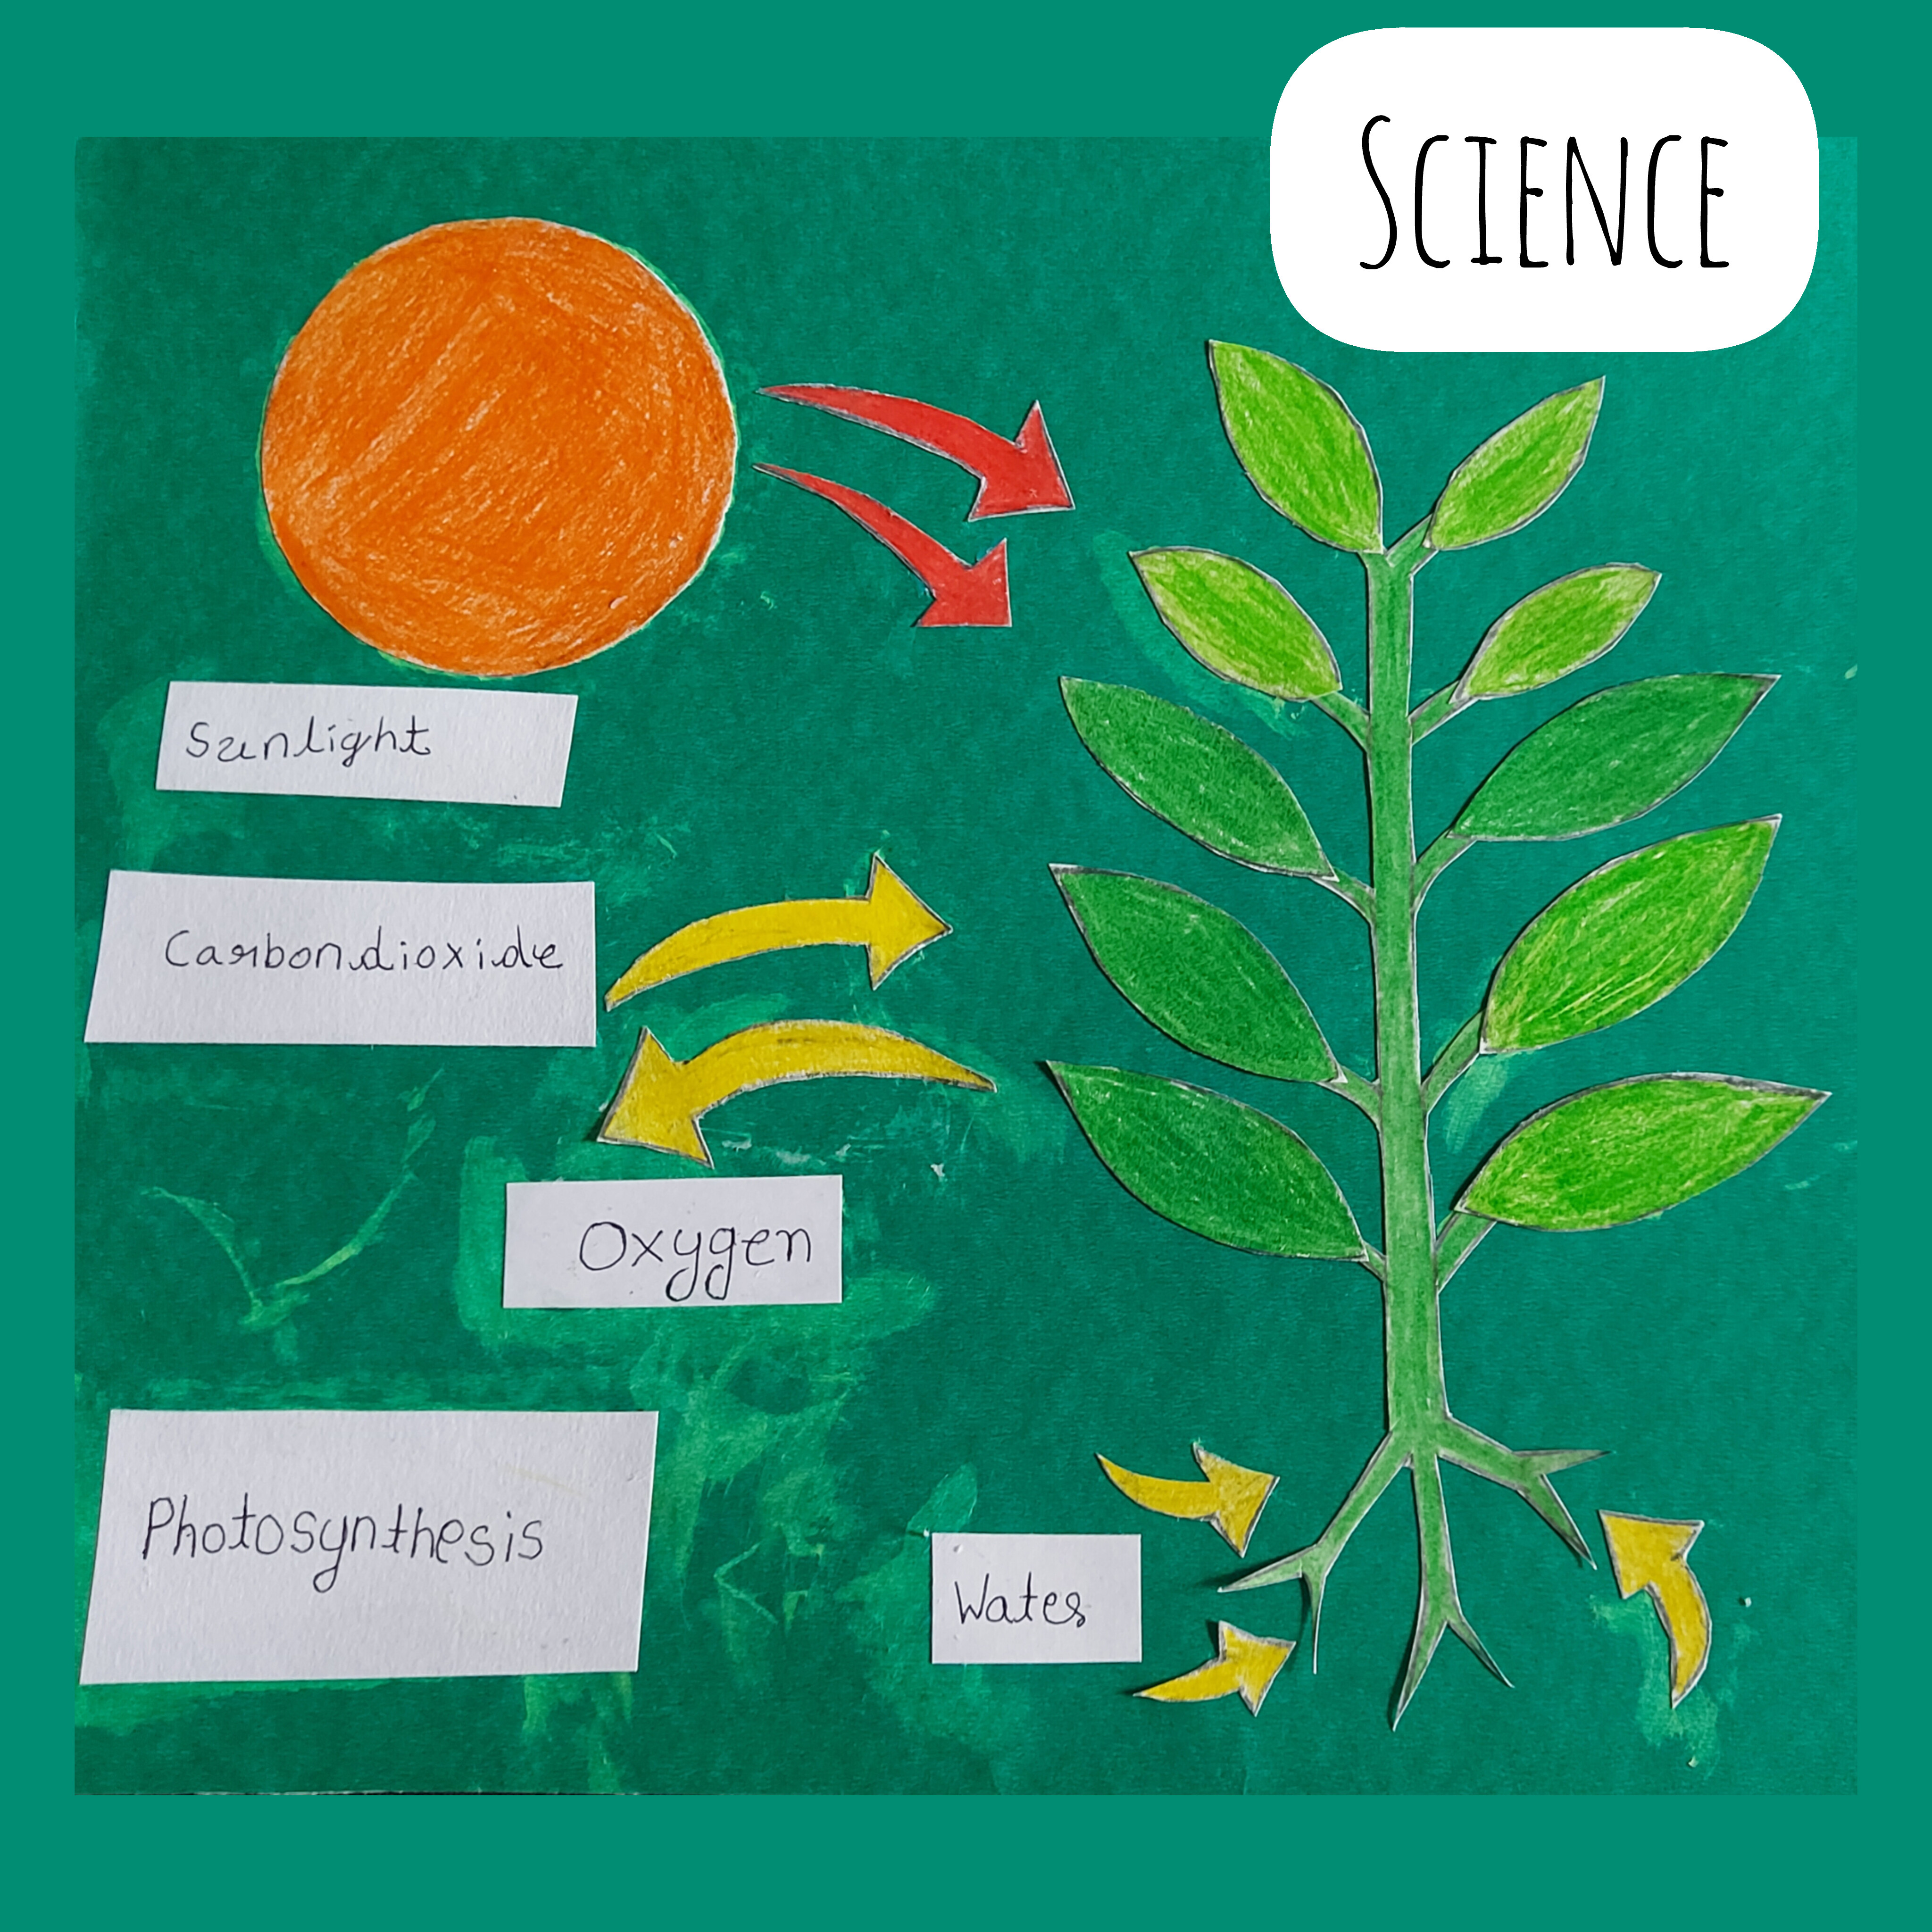 SCIENCE
Sunlight
Carbondioxide
Oxygen
Photosynthesis
Water